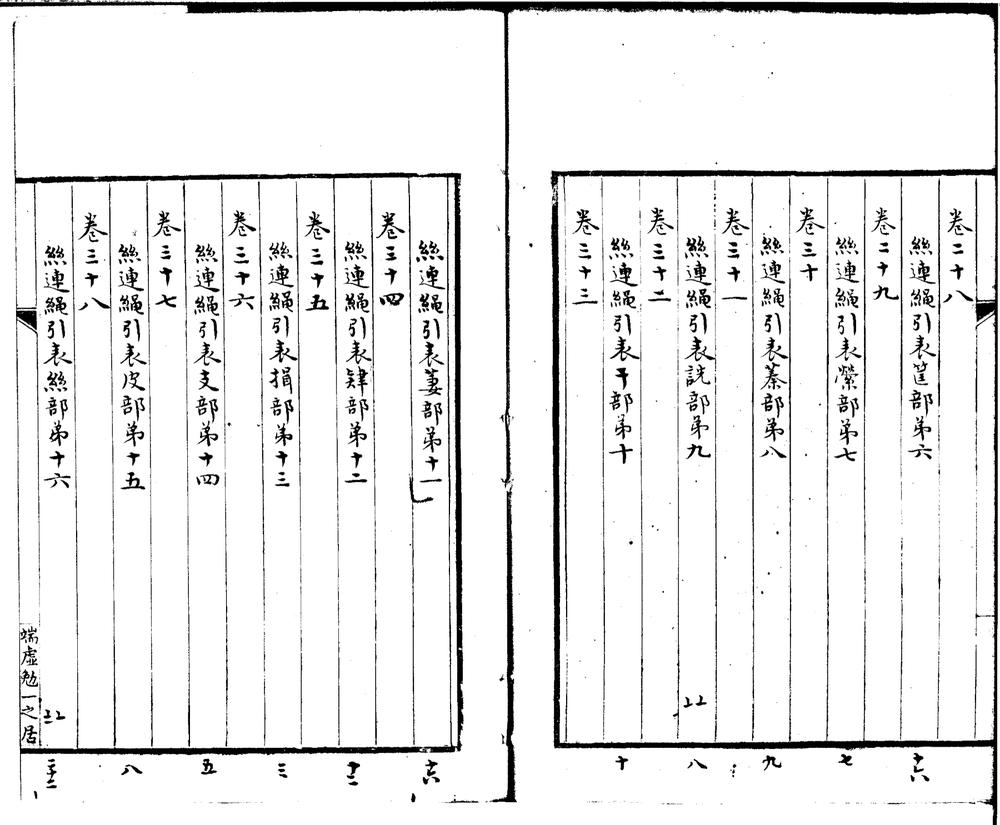 卷二十八
絲連繩引表筐部弟六
卷二十九
絲連繩引表縈部弟七
卷三十
絲連繩引表蓁部弟八
卷三十一
絲連繩引表詵部弟九
卷三十二
絲連繩引表干部弟十
卷三十三
十六
七
九
八
十
絲連繩引表萋部弟十一
卷三十四
絲連繩引表肄部弟十二
卷三十五
絲連繩引表揖部弟十三
卷三十六
絲連繩引表支部弟十四
卷三十七
絲連繩引表皮部弟十五
卷三十八
絲連繩引表絲部弟十六
端虛勉一之居
十六
十二
三
五
八